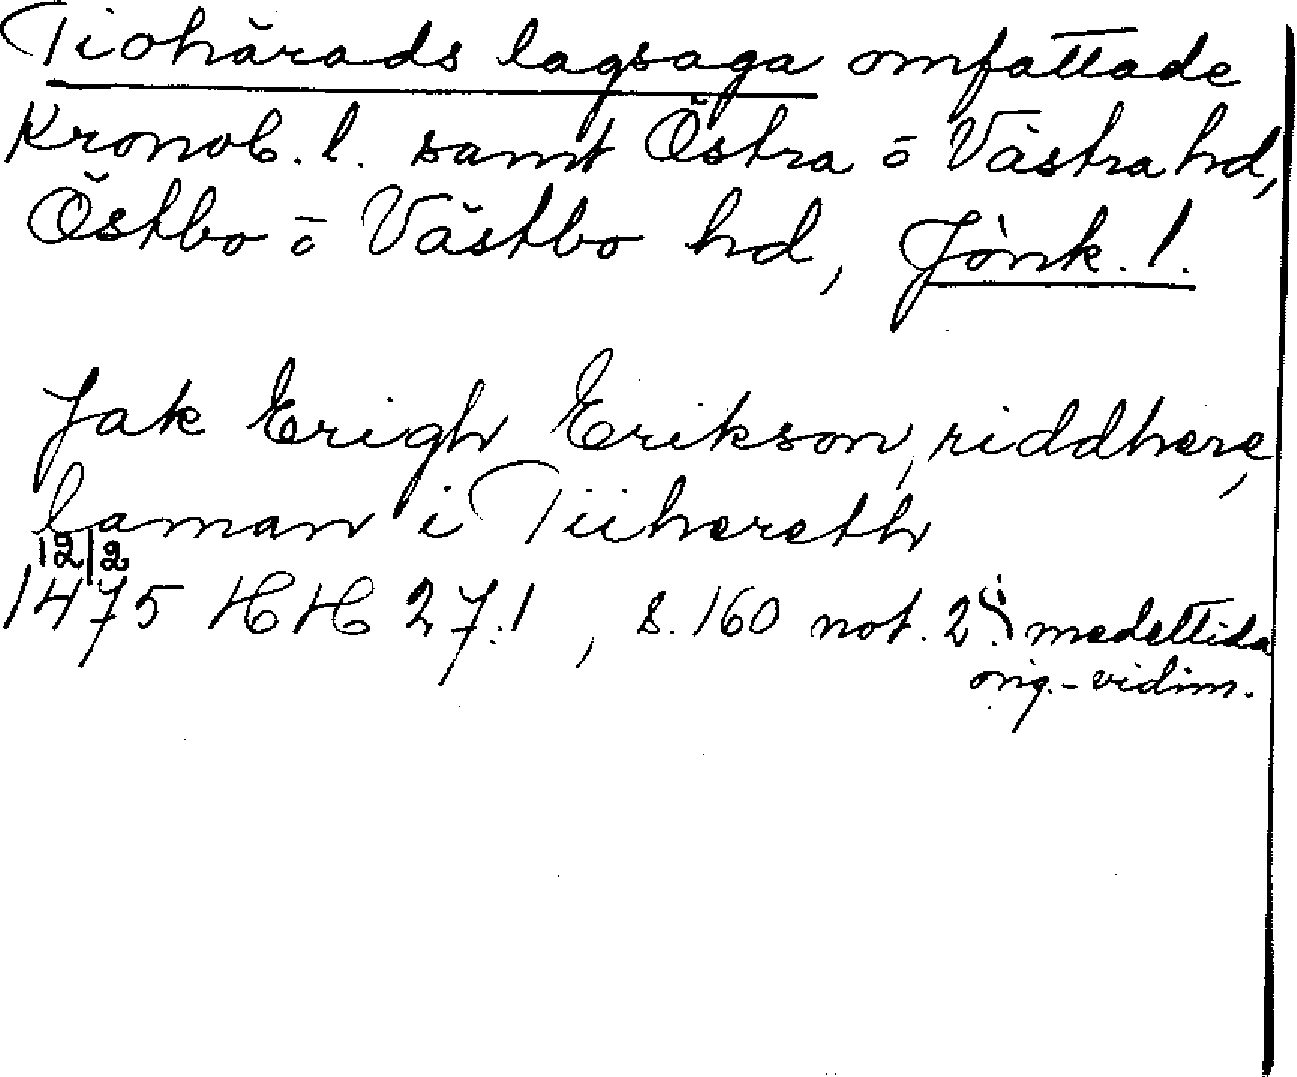 Tiohärads lagsaga omfattade
Kronob. l. samt Östra o Västra hd,
Östbo o Västbo hd, Jönk. l.
Jak Erigh Erikson, riddhere,
laman i Tiihereth
12/2
1475 HH 27:1, s. 160 not. 2 medeltida
orig.-vidim.